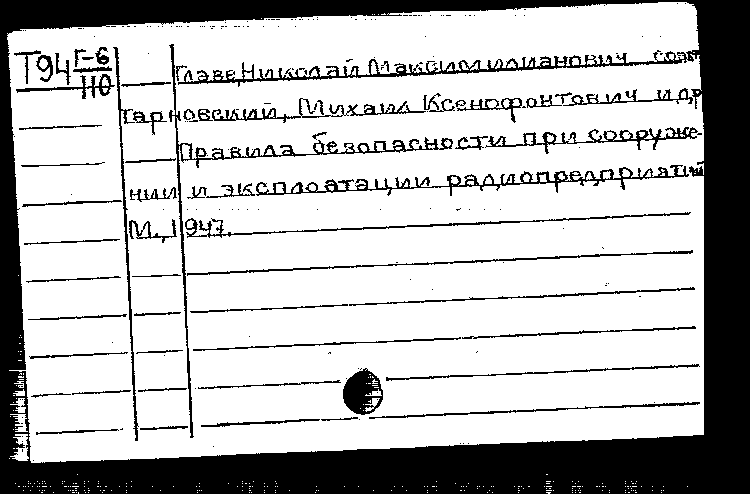 Т94 Г-6
110
Главе, Николай Максимилианович соавт
Тарновский, Михаил Ксенофонтович и др
Правила безопасности при сооруже-
нии и эксплоатации радиопредприятий
М., 1947.